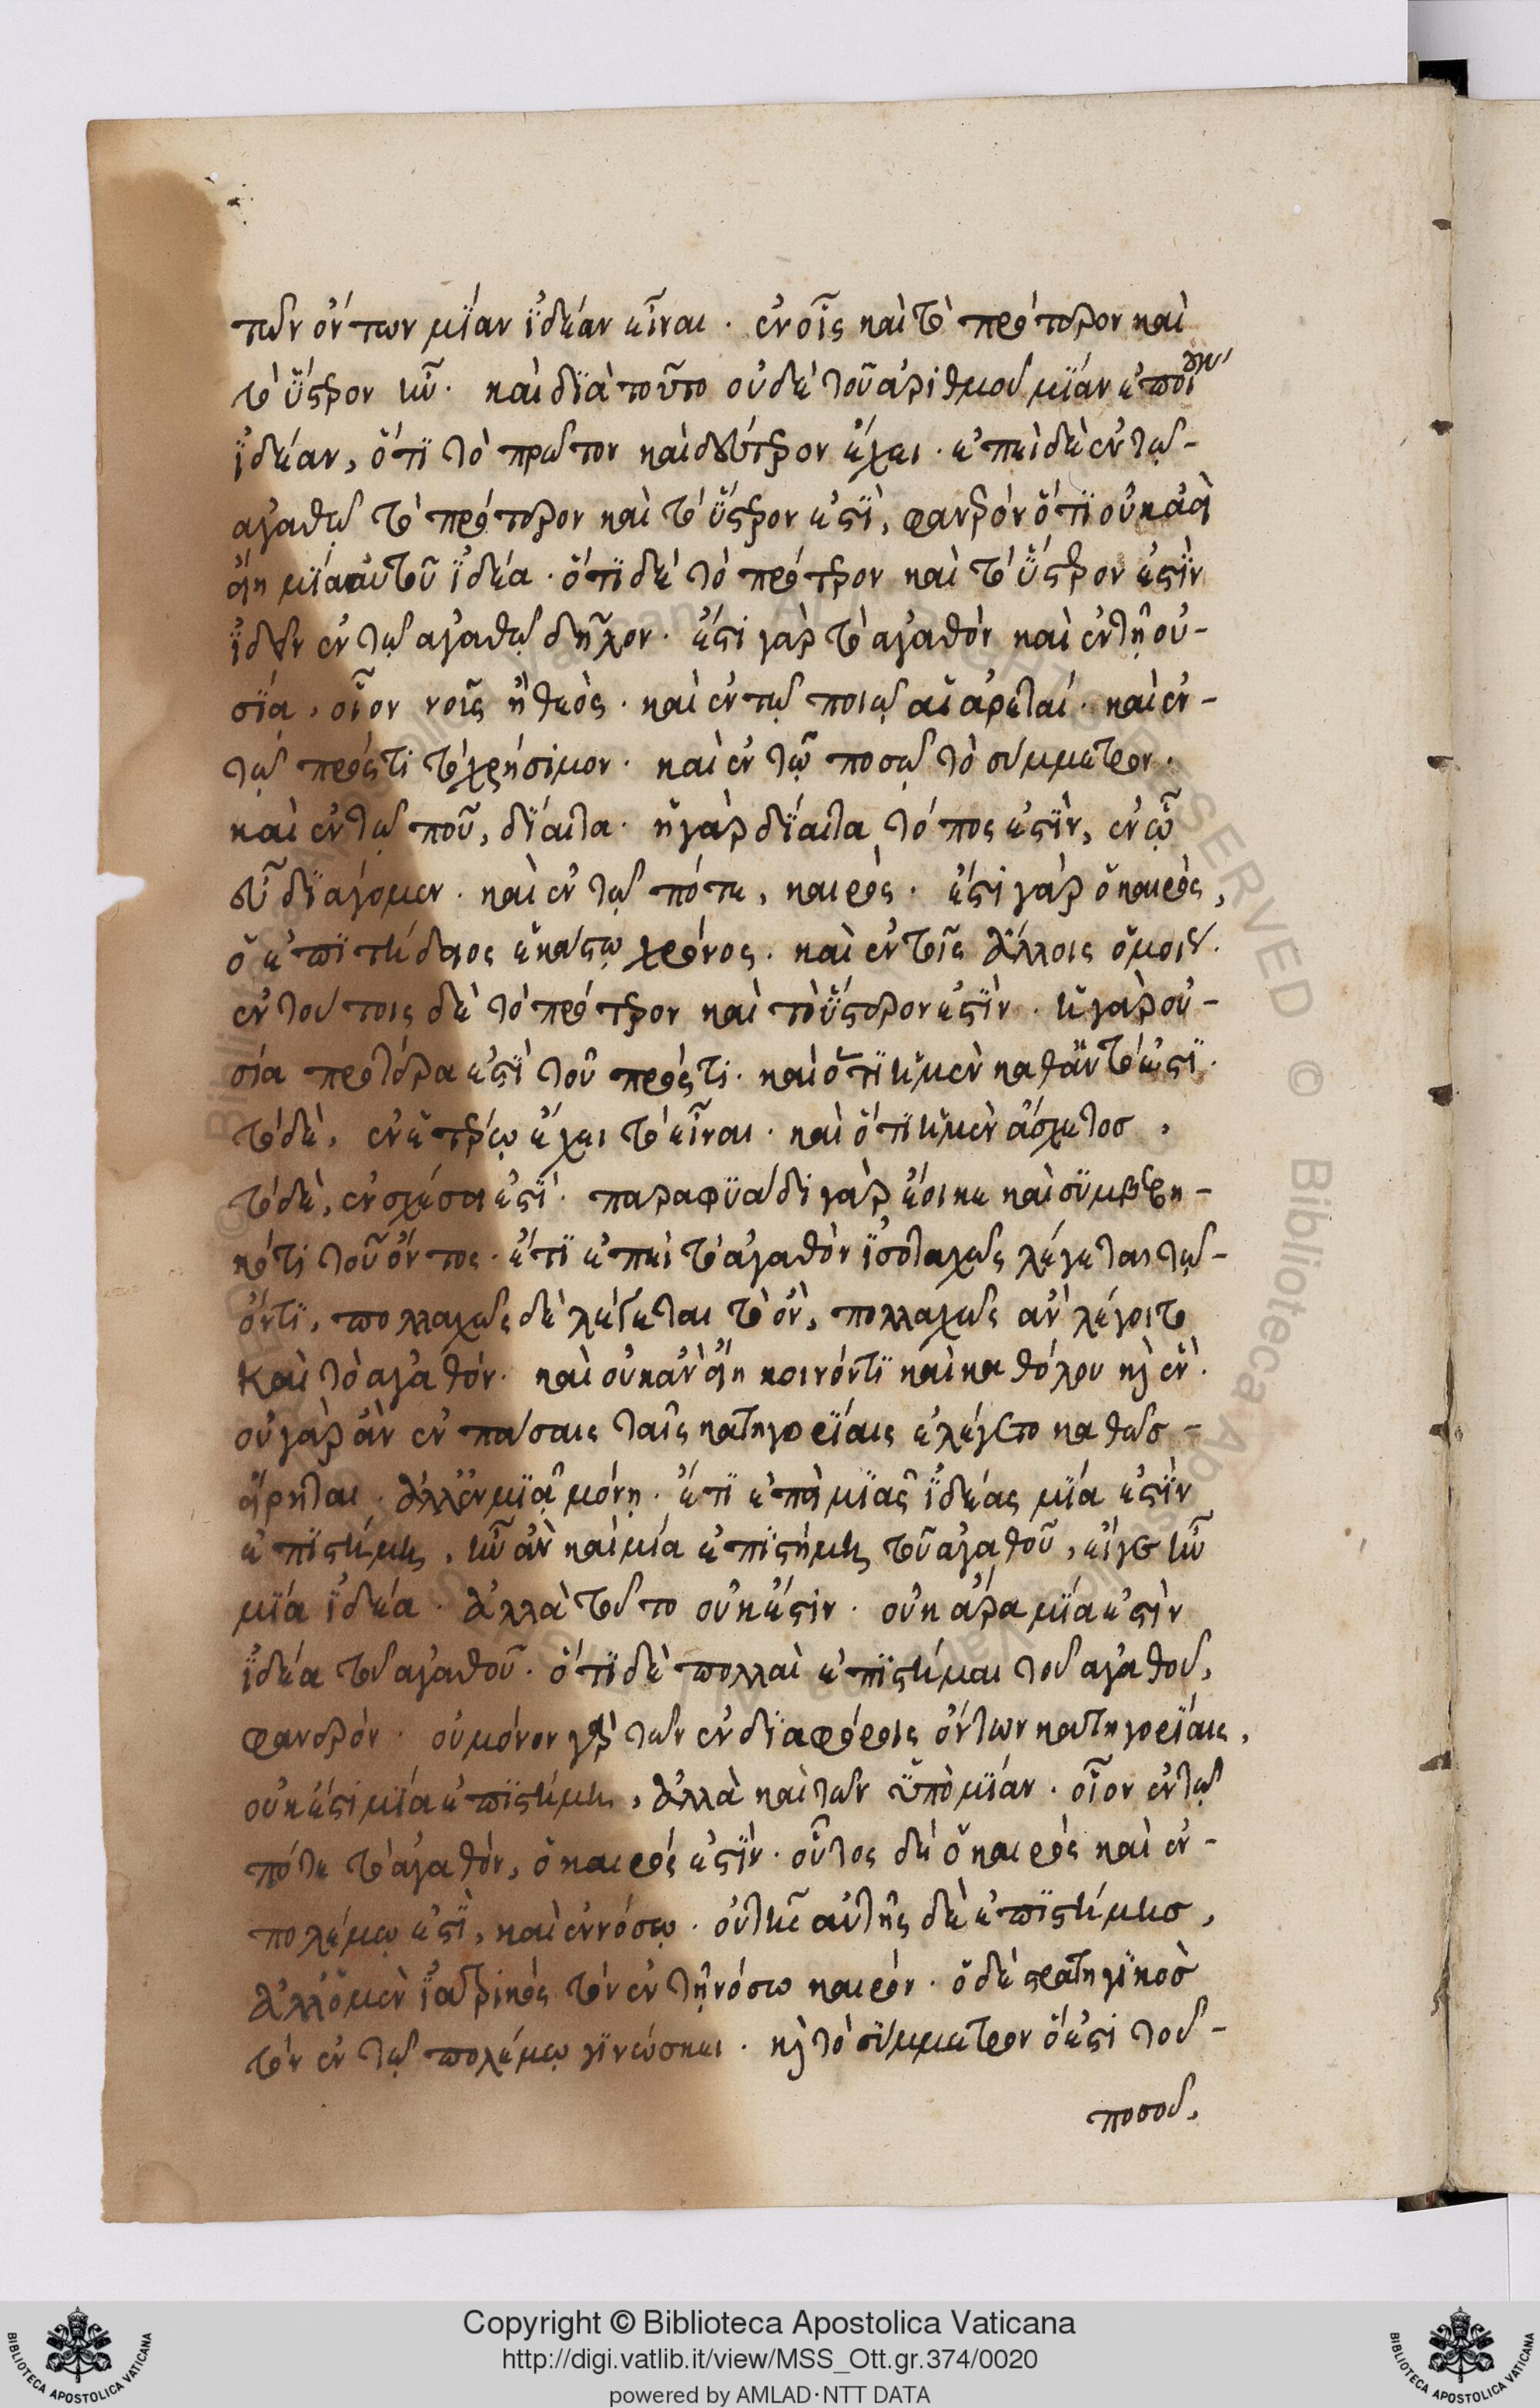 τῶν ὄντων μΐαν ἰδέαν εἶναι. ἐν οἷς καὶ τὸ πρότερον καὶ
τὸ ὕστερον ἦν. καὶ δϊὰ τοῦτο οὐδὲ τοῦ ἀριθμοῦ μΐαν ἐποίουν
ἰδέαν, ὅτι τὸ πρῶτον καὶ δεύτερον ἔχει. ἐπεὶ δὲ ἐν τῶ-
αγαθῶ τὸ πρότερον καὶ τὸ ὕστερον ἐστϊ, φανερὸν ὅτι οὐκ ἂν
εἴη μΐα αὐτοῦ ἰδέα. ὅτι δὲ τὸ πρότερον καὶ τὸ ὕστερον ἐστὶν
ἰδεῖν ἐν τῷ ἀγαθῷ δῆλον. ἔστι γὰρ τὸ ἀγαθὸν καὶ ἐν τῇ οὐ-
σία, οἷον νοῦς ἢ θεὸς. καὶ ἐν τῷ ποιῷ αἱ ἀρεταί. καὶ ἐν-
τῷ πρός τι τὸ χρήσιμον. καὶ ἐν τῷ ποσῷ τὸ σύμμετρον.
καὶ ἐν τῷ ποῦ, δΐαιτα. ἡ γὰρ δΐαιτα τόπος ἐστϊν, ἐν ᾧ
εὖ δϊάγομεν. καὶ ἐν τῷ πότε, καιρὸς. ἔστι γὰρ ὁ καιρὸς,
ὁ ἐπιτήδειος ἑκάστῳ χρόνος. καὶ ἐν τοῖς ἄλλοις ὁμοίως.
ἐν τούτοις δὲ τὸ πρότερον καὶ τὸ ὕστερον ἐστϊν. ἡ γὰρ οὐ-
σία προτέρα ἐστϊ τοῦ πρός τι. καὶ ὅτι ἡ μὲν καθ' αὑτὸ ἐστϊ.
τὸ δὲ, ἐν ἑτέρῳ ἔχει τὸ εἶναι. καὶ ὅτι ἡ μὲν ἄσχετοσ,
τὸ δὲ, ἐν σχέσει ἐστϊ. παραφϋάδι γὰρ ἔοικε καὶ συμβεβη-
κότι τοῦ ὄντος. ἔτι ἐπεὶ τὸ ἀγαθὸν ἰσοταχῶς λέγεται τῷ-
ὄντι, πολλαχῶς δὲ λέγεται τὸ ὂν, πολλαχῶς ἂν λέγοιτο
καὶ τὸ ἀγαθόν. καὶ οὐκ ἂν εἴη κοινόν τι καὶ καθόλου κ ἓν.
οὐ γὰρ ἂν ἐν πάσαις ταῖς κατηγορίαις ἐλέγετο καθὼσ-
εἴρηται. ἀλλ' ἐν μϊᾷ μόνῃ. ἔτι ἐπεὶ μϊᾶς ἰδέας μΐα ἐστὶν
ἐπιστήμη, ἦν ἂν καὶ μία ἐπιστήμη τοῦ ἀγαθοῦ, εἴγε ἦν
μΐα ἰδέα. ἀλλὰ τοῦτο οὐκ ἔστιν. οὐκ ἄρα μΐα ἐστὶν
ἰδέα τοῦ ἀγαθοῦ. ὅτι δὲ πολλαὶ ἐπιστήμαι τοῦ ἀγαθοῦ,
φανερόν. οὐ μόνον γὰρ τῶν ἐν δϊαφόροις ὄντων κατηγορίαις,
οὐκ ἔστι μΐα ἐπιστήμη, ἀλλὰ καὶ τῶν ὑπὸ μΐαν. οἷον ἐν τῷ
πότε τὸ ἀγαθὸν, ὁ καιρός ἐστϊν. οὗτος δὲ ὁ καιρὸς καὶ ἐν-
πολέμῳ ἐστϊ, καὶ ἐν νόσῳ. οὐ τῆς αὐτῆς δὲ ἐπιστήμησ,
ἀλλ' ὁ μὲν ἰατρικός τὸν ἐν τῇ νόσω καιρόν. ὁ δὲ στρατηγϊκὸσ
τὸν ἐν τῷ πολέμῳ γινώσκει. κ τὸ σύμμετρον ὅ ἐστι τοῦ-
ποσοῦ,